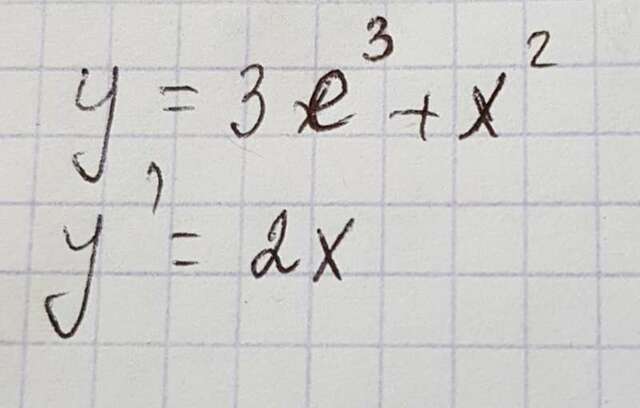 y = 3e³ + x²
y' = 2x